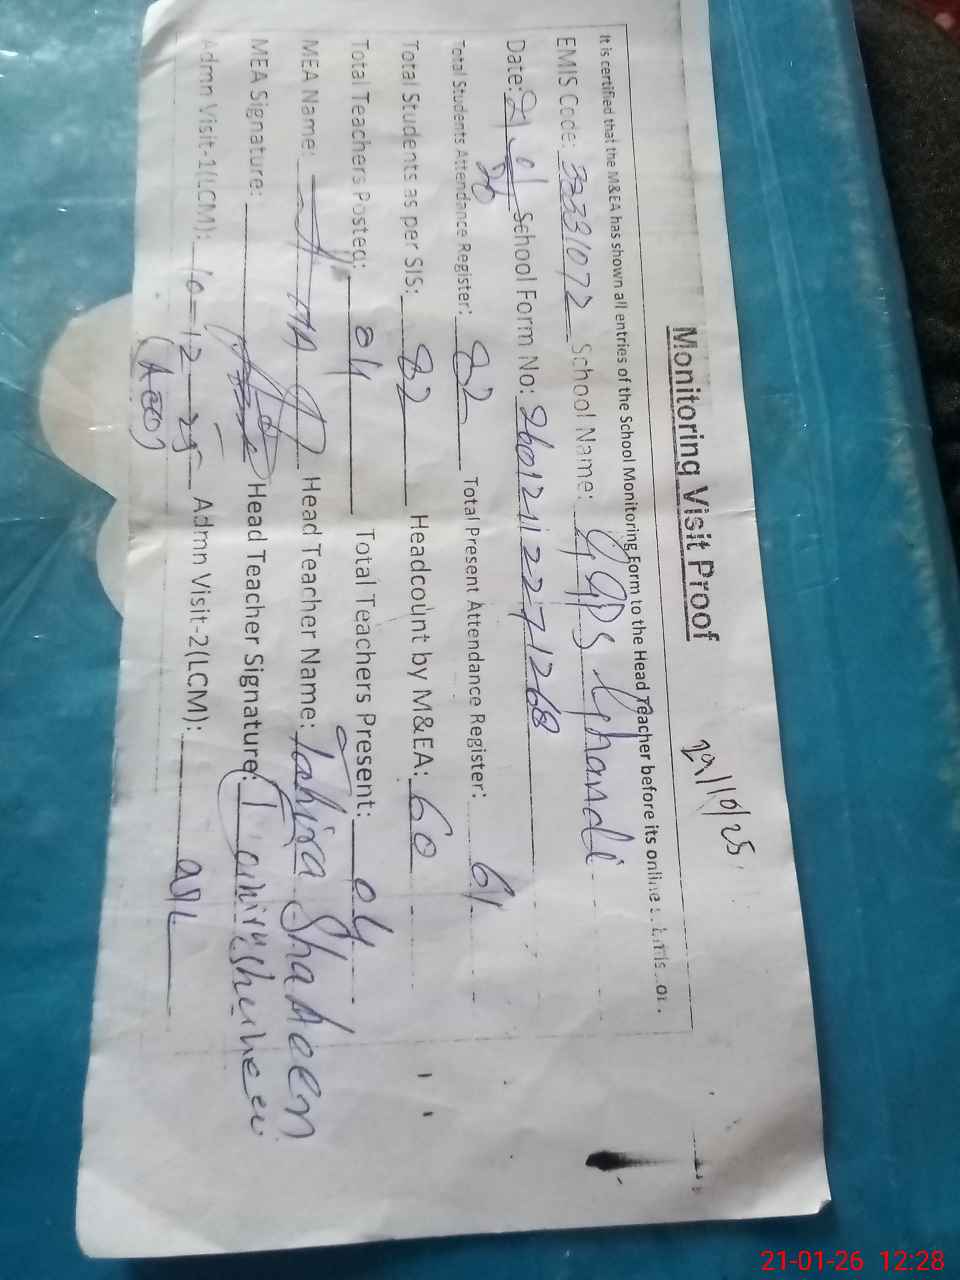 29/10/25
Monitoring Visit Proof
It is certified that the M&EA has shown all entries of the School Monitoring Form to the Head Teacher before its online
EMIS Code: 33331072 School Name: GGPS Ghandi
Date: 21/01/26 School Form No: 260121122271268
Total Students Attendance Register: 82 Total Present Attendance Register: 61
Total Students as per SIS: 82 Headcount by M&EA: 60
Total Teachers Posted: 04 Total Teachers Present: 04
MEA Name: Head Teacher Name: Tahira Shaheen
MEA Signature: Head Teacher Signature:
Admn Visit-1(LCM): 10-12-25 Admn Visit-2(LCM):
21-01-26 12:28